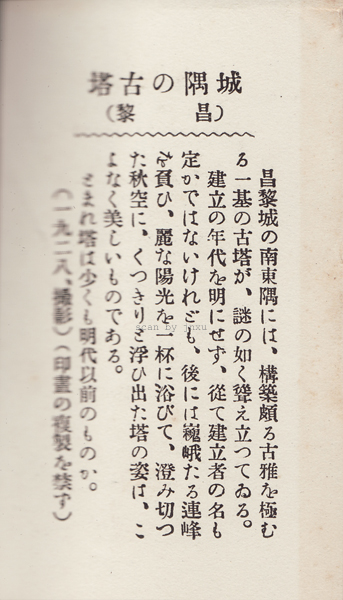 城隅の古塔
（昌黎）
昌黎城の南東隅には、構築頗る古雅を極む
る一基の古塔が、謎の如く聳え立つてゐる。
建立の年代を明にせず、従て建立者の名も
定かではないけれども、後には巍峨たる連峰
を負ひ、麗な陽光を一杯に浴びて、澄み切つ
た秋空に、くつきりと浮び出た塔の姿は、こ
よなく美しいものである。
とまれ塔は少くも明代以前のものか。
（一九二八、撮影）（印畫の複製を禁ず）
scan by jnxu